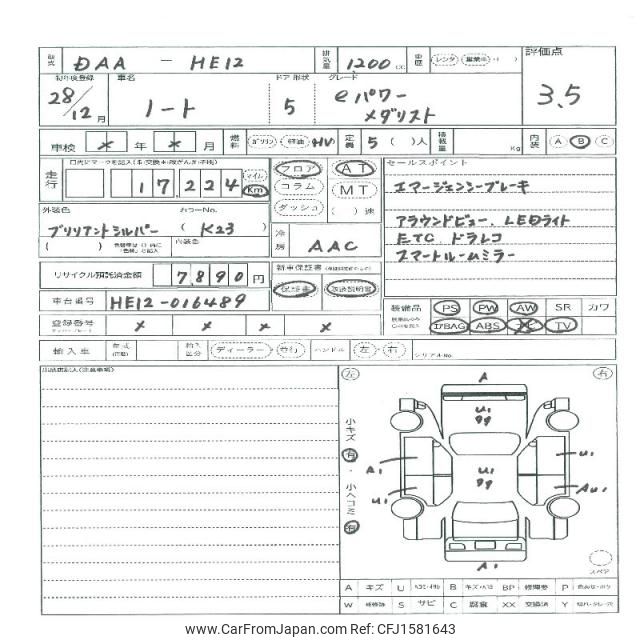 型式 DAA - HE12 排気量 1200 cc 車歴 レンタ 営業車 ( ) 評価点
初年度登録 車名 ドア 形状 グレード
28/12月 ノート 5 eパワー メダリスト 3.5
車検 × 年 × 月 燃料 ガソリン 軽油 HV 定員 5 ( )人 積載量 Kg 内装 A B C
走行 17,224 マイル Km フロア コラム ダッシュ AT MT ( )速 セールスポイント
エマージェンシーブレーキ
外装色 カラーNo.
ブリリアントシルバー ( K23 ) アラウンドビュー、LEDライト
( ) 内装色 冷房 AAC ETC ドラレコ
スマートルームミラー
リサイクル預託済金額 7,890 円 新車保証書
保証書 取扱説明書
車台番号 HE12-016489 装備品 PS PW AW SR カワ
登録番号 × × × × エアBAG ABS TV
輸入車 年式 輸入区分 ディーラー 並行 ハンドル 左 右 シリアルNo.
左 右
小キズ 有 ・ 小ヘコミ 有
A
U1
99
A1 U1
U1
99
U1 AU1
A1
スペア
A キズ U B キズ・ヘコミ BP 修理要 P
W S サビ C 腐食 XX 交換済 Y
www.CarFromJapan.com Ref No: CFJ1581643